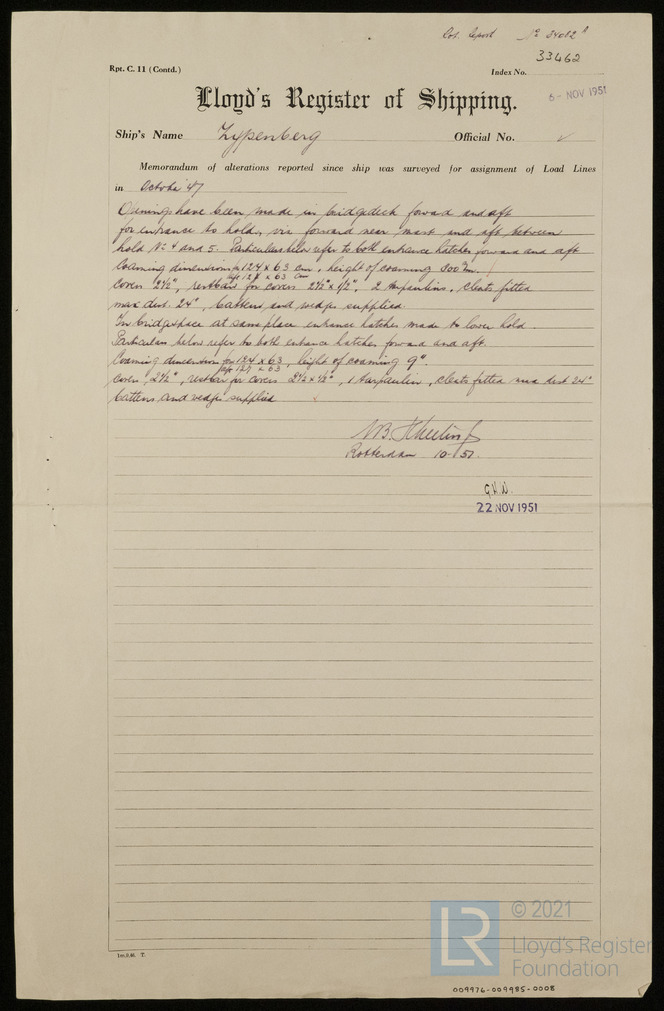 Rot. Report No 34012 A
33462
Rpt. C. 11 (Contd.)
Index No.
Lloyd's Register of Shipping.
6- NOV 1951
Ship's Name Zypenberg Official No. ✓
Memorandum of alterations reported since ship was surveyed for assignment of Load Lines
in October 47
Openings have been made in bridgedeck forward and aft
for entrance to holds, viz forward near mast and aft between
hold No 4 and 5. Particulars below refer to both entrance hatches forward and aft
Coaming dimensions for 124 x 63 cm, height of coaming 800 m.
aft 127 x 63 cm
covers 2½", restbar for covers 2½" x ½", 2 tarpaulins, cleats fitted
max dist. 24", battens and wedges supplied.
In bridgespace at same place entrance hatches made to lower hold.
Particulars below refer to both entrance hatches forward and aft.
Coaming dimension for 124 x 63, height of coaming 9".
aft 127 x 63
covers 2½", restbar for covers 2½ x ½", 1 tarpaulin, cleats fitted max dist 24"
battens and wedges supplied
Rotterdam 10-51.
G.H.W.
22 NOV 1951
T.
© 2021
LR
Lloyd's Register
Foundation
009976-009985-0008